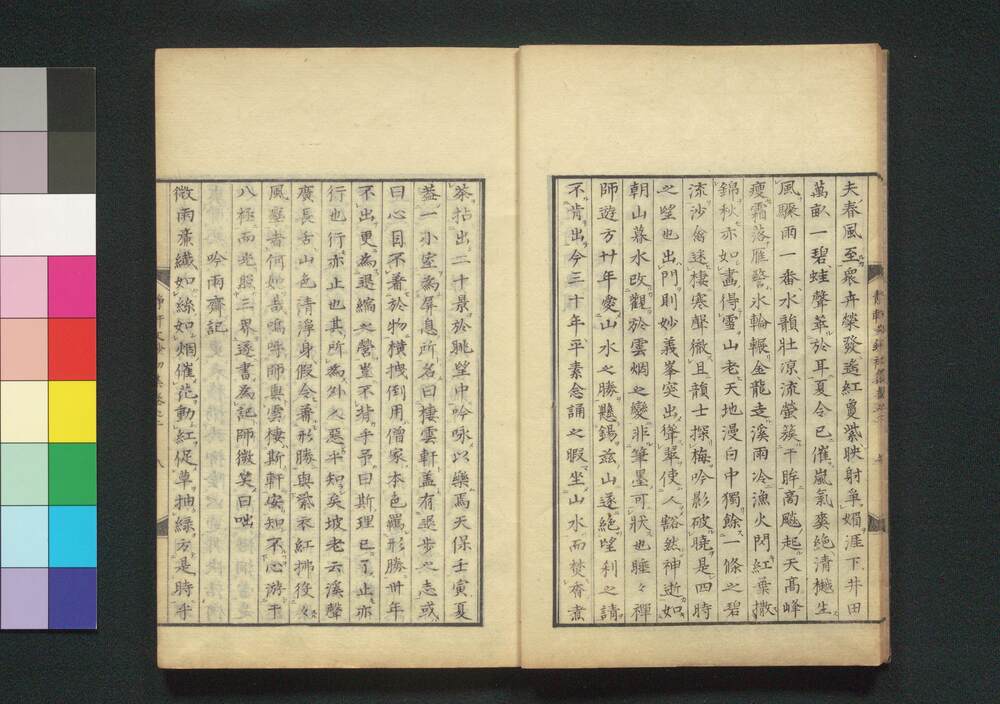 夫春風至衆卉榮發造紅賣紫映射争媚涯下井田
萬畝一碧蛙聲華於耳夏令已催嵐氣爽絶清樾生
風驟雨一番水韻壮涼流螢簇于眸高颷起天高峰
瘦霜落雁警氷輪輾金龍走溪雨冷漁火閃紅葉撒
錦秋亦如畫得雪山老天地漫白中獨餘一條之碧
流沙禽迷棲寒聲徹且韻士探梅吟影破曉是四時
之望也出門則妙義峯突出聳翠使人豁然神逝如
朝山暮水改觀於雲烟之變非筆墨可状也唾々禪
師遊方廿年愛山水之勝懸錫茲山遂絶望利之請
不肯出今三十年平素念誦之暇坐山水而焚香煮
茶拈出二十景於眺望中吟咏以樂焉天保壬寅夏
葢一小室為屏息所名曰棲雲軒盖有退歩之志或
曰心目不着於物横拽倒用僧家本色羈形勝卅年
不出更為退縮之營豈不背乎予曰斯理已了止亦
行也行亦止也其所為外人惡乎知矣坡老云溪聲
廣長舌山色清淨身假令蓄形勝與紫衣紅拂役々
風塵者何如哉嗚呼師與雲棲斯軒安知不心游于
八極而光照三界遂書為記師微笑曰咄
吟雨齋記
微雨廉纖如絲如烟催花動紅促草抽緑方是時乎